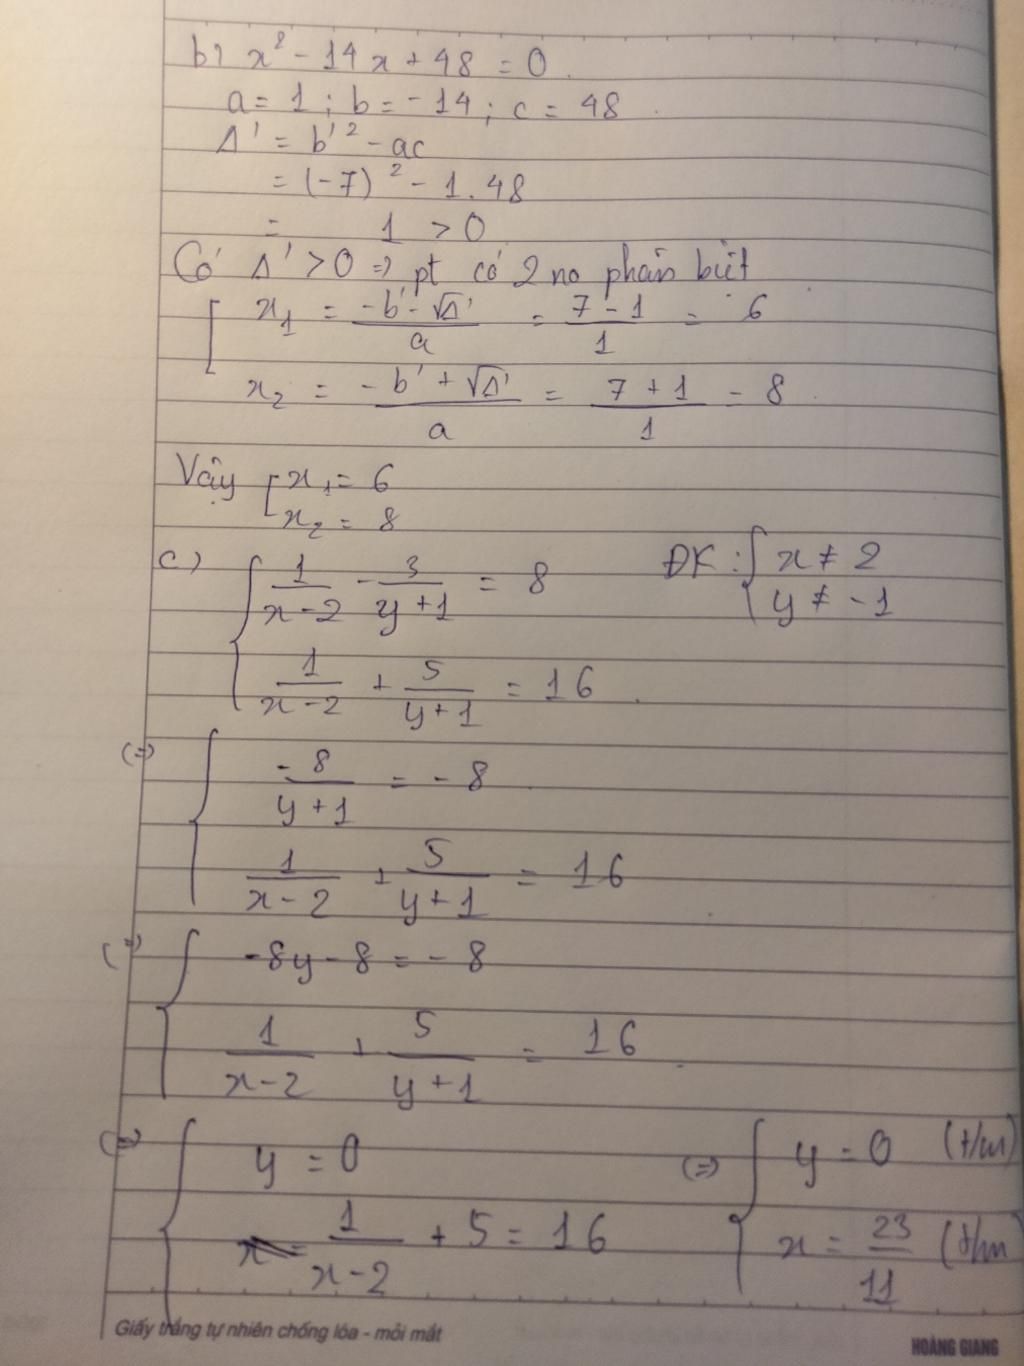 b) x² - 14x + 48 = 0.
a = 1 ; b = -14 ; c = 48
Δ' = b'² - ac
= (-7)² - 1.48
= 1 > 0
Có Δ' > 0 => pt có 2 no phân biệt
[ x₁ = (-b' - √Δ')/a = (7 - 1)/1 = 6
x₂ = (-b' + √Δ')/a = (7 + 1)/1 = 8
Vậy [ x₁ = 6
x₂ = 8
c) { 1/(x-2) - 3/(y+1) = 8 ĐK: { x ≠ 2
y ≠ -1
1/(x-2) + 5/(y+1) = 16
(=) { -8/(y+1) = -8
1/(x-2) + 5/(y+1) = 16
(=) { -8y - 8 = -8
1/(x-2) + 5/(y+1) = 16
(=) { y = 0 (=) { y = 0 (t/m)
1/(x-2) + 5 = 16 x = 23/11 (t/m
Giấy trắng tự nhiên chống lóa - mỏi mắt
HOÀNG GIANG